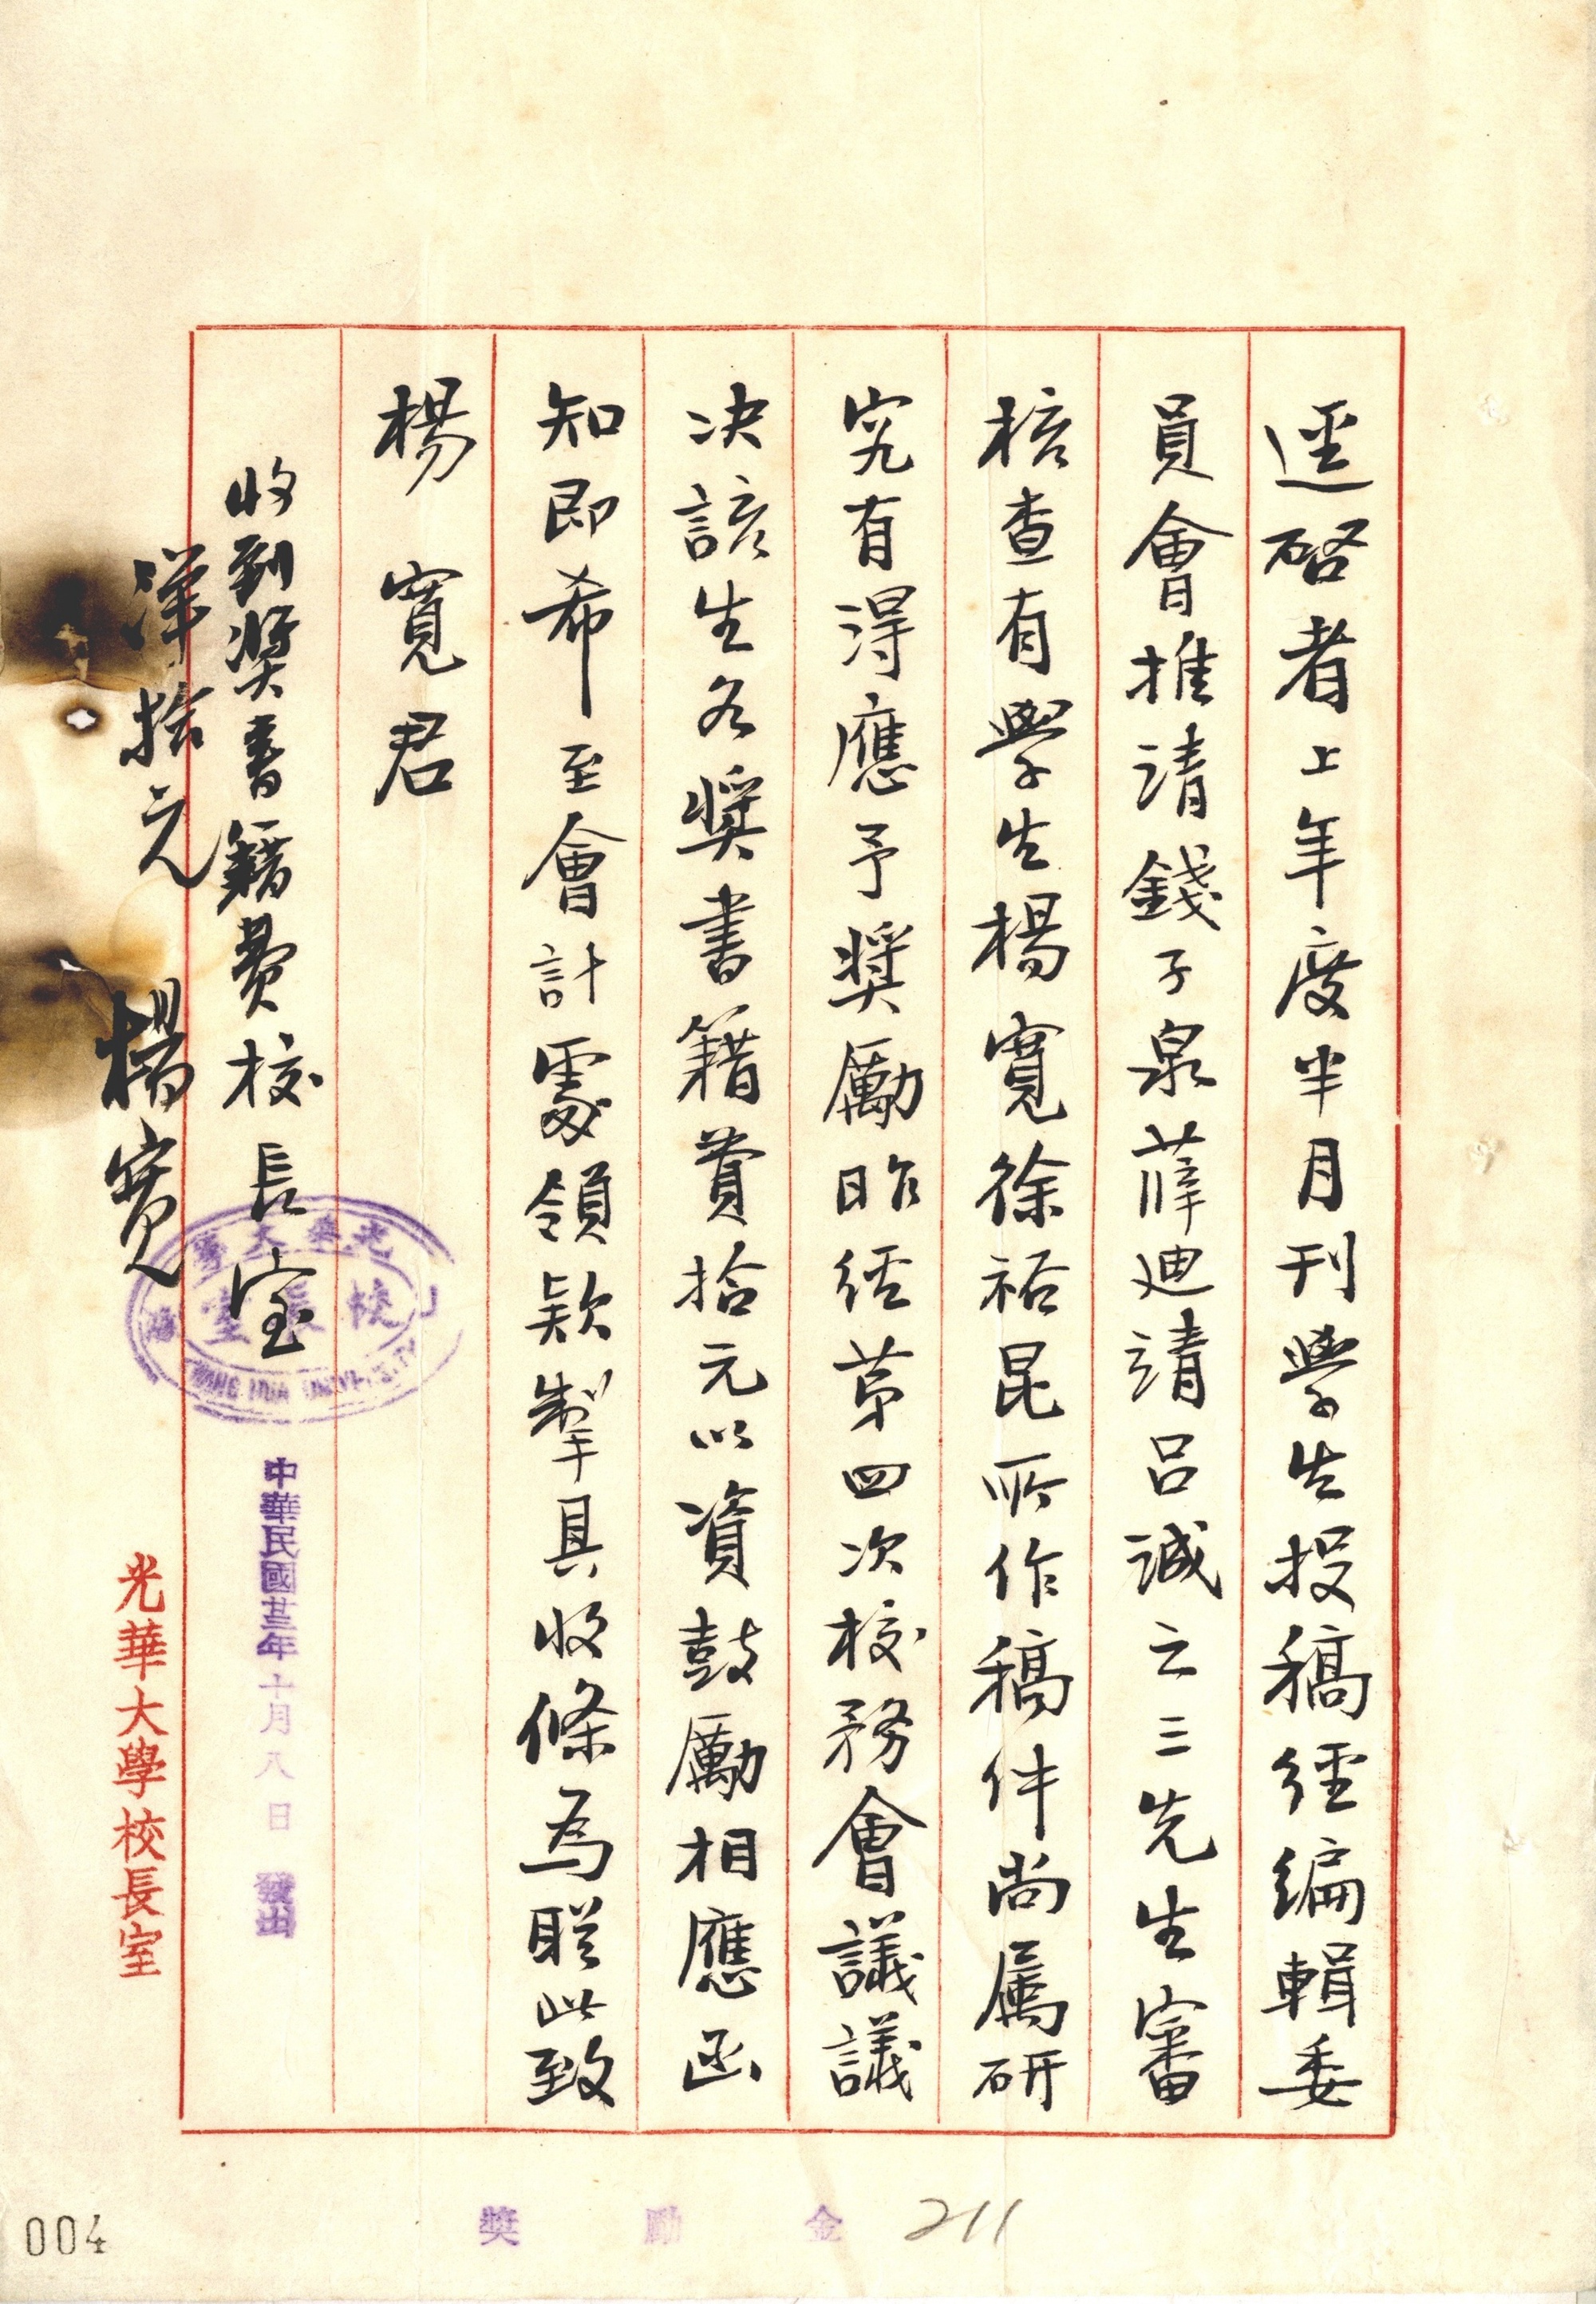 逕啓者上年度半月刊學生投稿經編輯委
員會推請錢子泉薛迪靖呂誠之三先生審
核查有學生楊寬徐裕昆所作稿件尚屬研
究有得應予奬勵昨經第四次校務會議議
決該生各奬書籍費拾元以資鼓勵相應函
知即希至會計處領款掣具收條為盼此致
楊寬君
校長室
光華大學
校長室
KWANG HUA UNIVERSITY
中華民國廿三年十月八日 發出
收到奬書籍費
洋拾元 楊寬
光華大學校長室
奬勵金 211
004